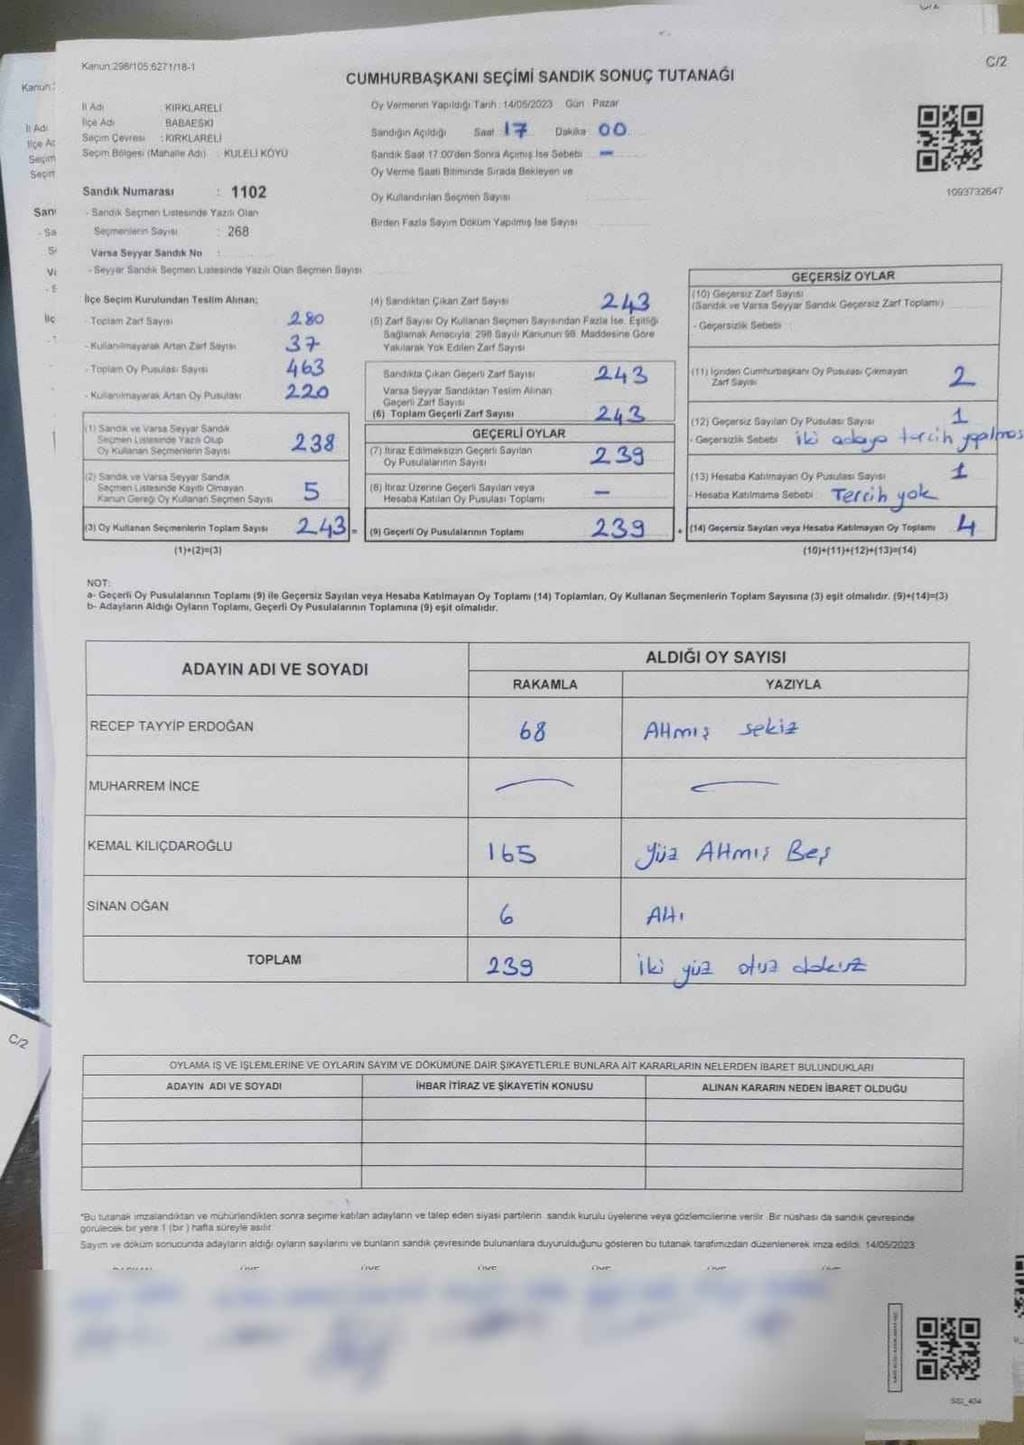 Kanun:298/105,6271/18-1
C/2
CUMHURBAŞKANI SEÇİMİ SANDIK SONUÇ TUTANAĞI
İl Adı : KIRKLARELİ
İlçe Adı BABAESKİ
Seçim Çevresi : KIRKLARELİ
Seçim Bölgesi (Mahalle Adı) : KULELİ KÖYÜ
Oy Vermenin Yapıldığı Tarih : 14/05/2023 Gün Pazar
Sandığın Açıldığı Saat 17 Dakika 00
Sandık Saat 17:00'den Sonra Açılmış İse Sebebi –
Oy Verme Saati Bitiminde Sırada Bekleyen ve
Oy Kullandırılan Seçmen Sayısı
Birden Fazla Sayım Döküm Yapılmış İse Sayısı
1093732647
Sandık Numarası : 1102
- Sandık Seçmen Listesinde Yazılı Olan
Seçmenlerin Sayısı : 268
Varsa Seyyar Sandık No :
- Seyyar Sandık Seçmen Listesinde Yazılı Olan Seçmen Sayısı
İlçe Seçim Kurulundan Teslim Alınan;
- Toplam Zarf Sayısı 280
- Kullanılmayarak Artan Zarf Sayısı 37
- Toplam Oy Pusulası Sayısı 463
- Kullanılmayarak Artan Oy Pusulası 220
(1) Sandık ve Varsa Seyyar Sandık
Seçmen Listesinde Yazılı Olup
Oy Kullanan Seçmenlerin Sayısı 238
(2) Sandık ve Varsa Seyyar Sandık
Seçmen Listesinde Kayıtlı Olmayan
Kanun Gereği Oy Kullanan Seçmen Sayısı 5
(3) Oy Kullanan Seçmenlerin Toplam Sayısı 243 =
(1)+(2)=(3)
(4) Sandıktan Çıkan Zarf Sayısı 243
(5) Zarf Sayısı Oy Kullanan Seçmen Sayısından Fazla İse, Eşitliği
Sağlamak Amacıyla; 298 Sayılı Kanunun 98. Maddesine Göre
Yakılarak Yok Edilen Zarf Sayısı
Sandıkta Çıkan Geçerli Zarf Sayısı 243
Varsa Seyyar Sandıktan Teslim Alınan
Geçerli Zarf Sayısı
(6) Toplam Geçerli Zarf Sayısı 243
GEÇERLİ OYLAR
(7) İtiraz Edilmeksizin Geçerli Sayılan
Oy Pusulalarının Sayısı 239
(8) İtiraz Üzerine Geçerli Sayılan veya
Hesaba Katılan Oy Pusulası Toplamı –
(9) Geçerli Oy Pusulalarının Toplamı 239 +
GEÇERSİZ OYLAR
(10) Geçersiz Zarf Sayısı
(Sandık ve Varsa Seyyar Sandık Geçersiz Zarf Toplamı)
- Geçersizlik Sebebi
(11) İçinden Cumhurbaşkanı Oy Pusulası Çıkmayan
Zarf Sayısı 2
(12) Geçersiz Sayılan Oy Pusulası Sayısı 1
- Geçersizlik Sebebi iki adaya tercih yapılmış
(13) Hesaba Katılmayan Oy Pusulası Sayısı 1
- Hesaba Katılmama Sebebi Tercih yok
(14) Geçersiz Sayılan veya Hesaba Katılmayan Oy Toplamı 4
(10)+(11)+(12)+(13)=(14)
NOT:
a- Geçerli Oy Pusulalarının Toplamı (9) ile Geçersiz Sayılan veya Hesaba Katılmayan Oy Toplamı (14) Toplamları, Oy Kullanan Seçmenlerin Toplam Sayısına (3) eşit olmalıdır. (9)+(14)=(3)
b- Adayların Aldığı Oyların Toplamı, Geçerli Oy Pusulalarının Toplamına (9) eşit olmalıdır.
ADAYIN ADI VE SOYADI ALDIĞI OY SAYISI
RAKAMLA YAZIYLA
RECEP TAYYİP ERDOĞAN 68 Altmış sekiz
MUHARREM İNCE
KEMAL KILIÇDAROĞLU 165 Yüz Altmış Beş
SİNAN OĞAN 6 Altı
TOPLAM 239 iki yüz otuz dokuz
OYLAMA İŞ VE İŞLEMLERİNE VE OYLARIN SAYIM VE DÖKÜMÜNE DAİR ŞİKAYETLERLE BUNLARA AİT KARARLARIN NELERDEN İBARET BULUNDUKLARI
ADAYIN ADI VE SOYADI İHBAR İTİRAZ VE ŞİKAYETİN KONUSU ALINAN KARARIN NEDEN İBARET OLDUĞU
*Bu tutanak imzalandıktan ve mühürlendikten sonra seçime katılan adayların ve talep eden siyasi partilerin sandık kurulu üyelerine veya gözlemcilerine verilir. Bir nüshası da sandık çevresinde
görülecek bir yere 1 (bir) hafta süreyle asılır.
Sayım ve döküm sonucunda adayların aldığı oyların sayılarını ve bunların sandık çevresinde bulunanlara duyurulduğunu gösteren bu tutanak tarafımızdan düzenlenerek imza edildi. 14/05/2023
C/2